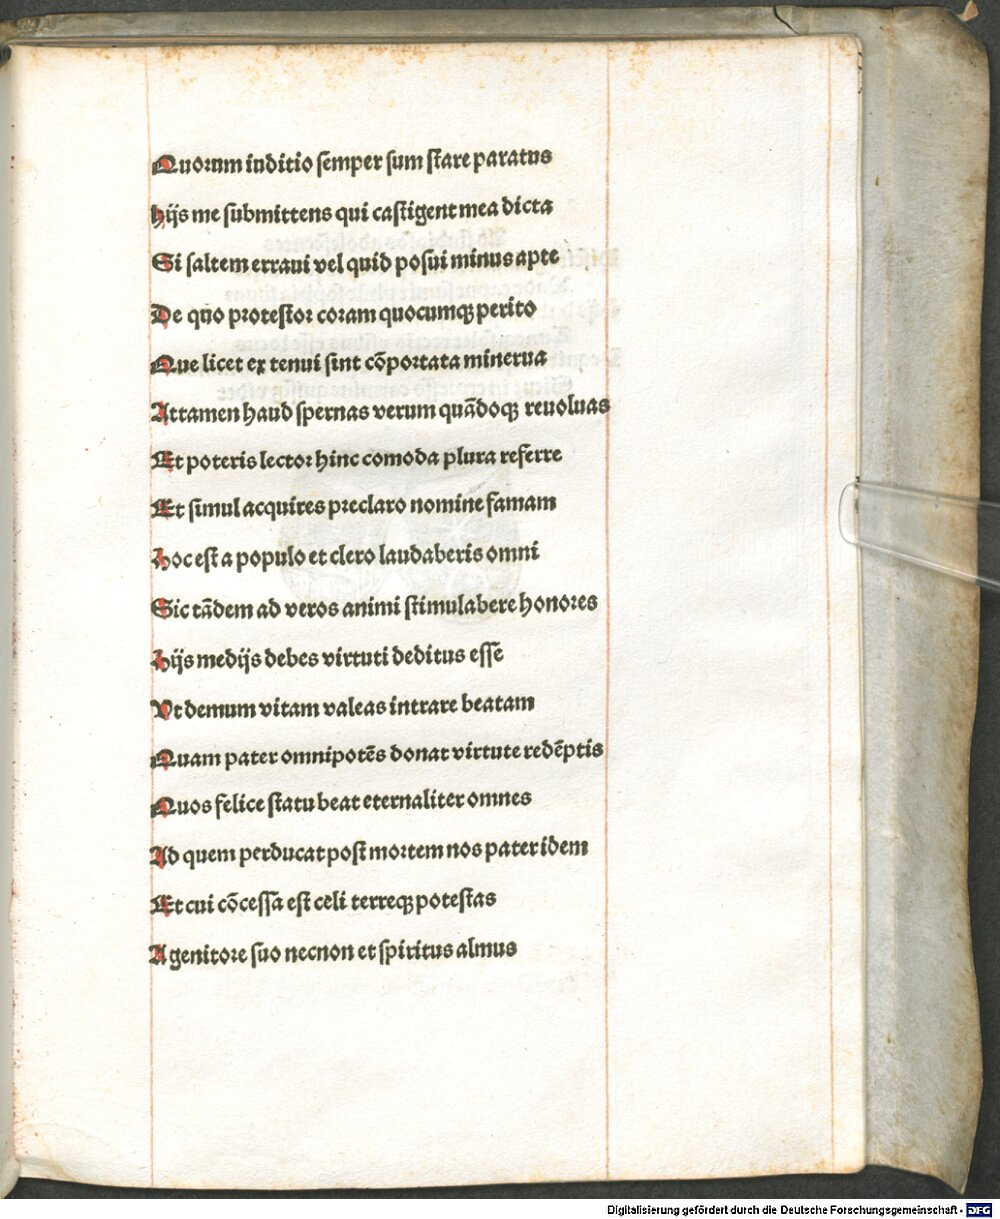 Quorum iuditio semper sum stare paratus
hijs me submittens qui castigent mea dicta
Si saltem erraui vel quid posui minus apte
De quo protestor coram quocumqꝫ perito
Que licet ex tenui sint cõportata minerua
Attamen haud spernas verum quãdoqꝫ reuoluas
Et poteris lector hinc comoda plura referre
Et simul acquires preclaro nomine famam
Hoc est a populo et clero laudaberis omni
Sic tãdem ad veros animi stimulabere honores
Hijs medijs debes virtuti deditus esse
Vt demum vitam valeas intrare beatam
Quam pater omnipotẽs donat virtute redẽptis
Quos felice statu beat eternaliter omnes
Ad quem perducat post mortem nos pater idem
Et cui cõcessa est celi terreqꝫ potestas
A genitore suo necnon et spiritus almus
Digitalisierung gefördert durch die Deutsche Forschungsgemeinschaft - DFG